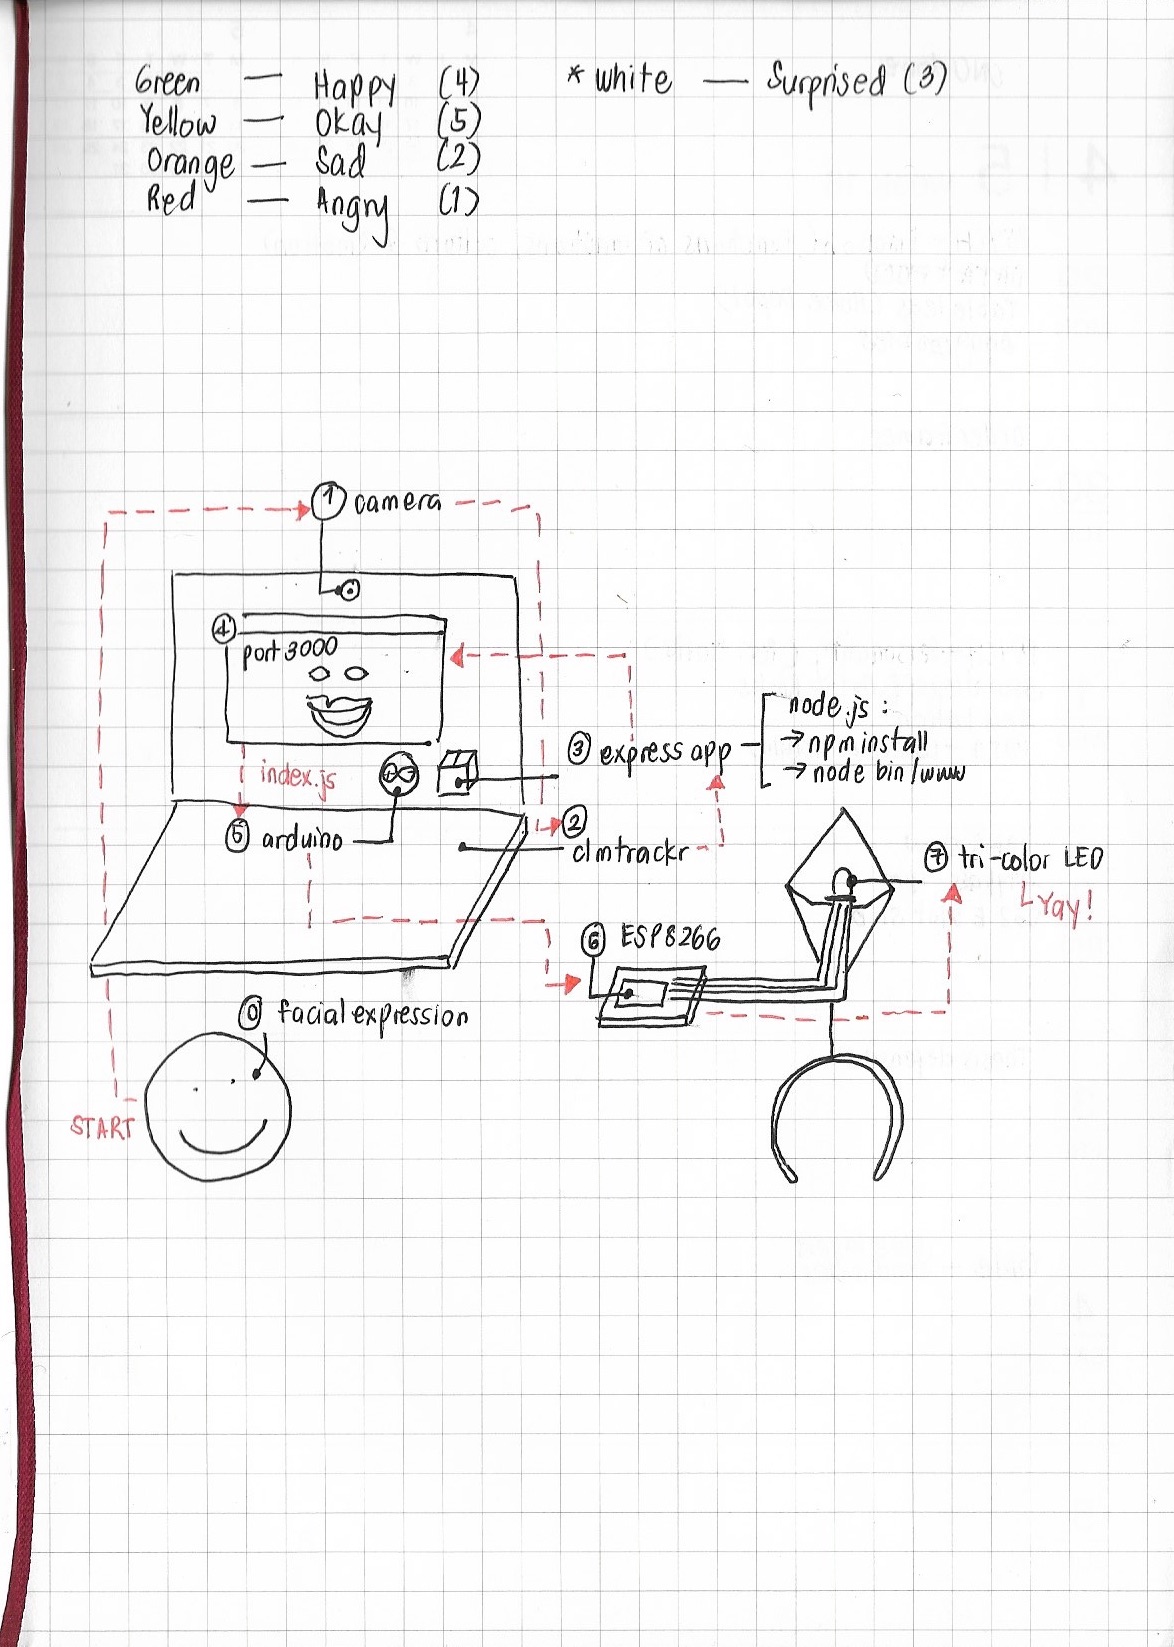 Green — Happy (4)
Yellow — Okay (5)
Orange — Sad (2)
Red — Angry (1)
* white — Surprised (3)
1 camera
4
port 3000
index.js
5 arduino
3 express app
node.js :
→ npm install
→ node bin/www
2
clmtrackr
7 tri-color LED
Yay!
6 ESP8266
0 facial expression
START